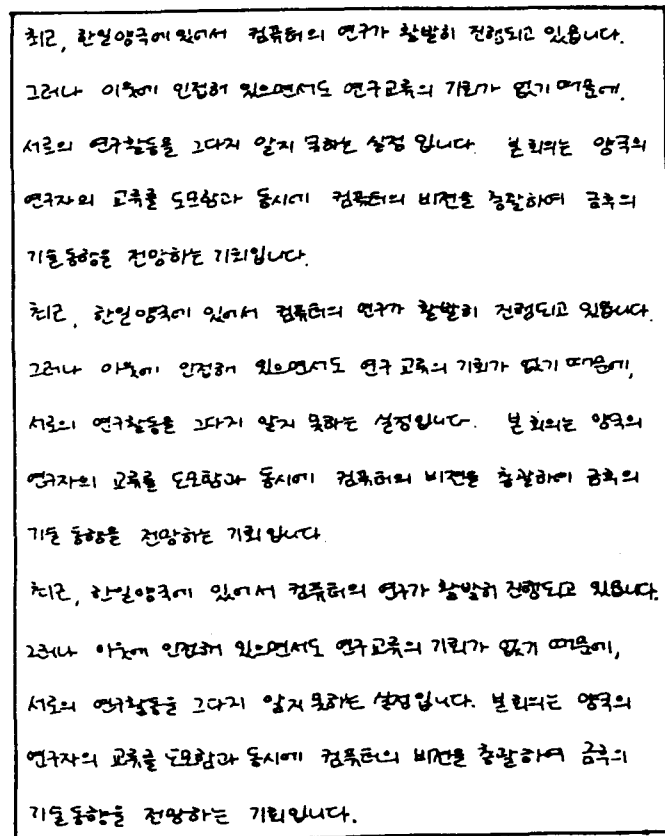 최근, 한일양국에 있어서 컴퓨터의 연구가 활발히 진행되고 있읍니다.
그러나 이웃에 인접해 있으면서도 연구교류의 기회가 없기 때문에,
서로의 연구활동을 그다지 알지 못하는 실정 입니다. 본 회의는 양국의
연구자의 교류를 도모함과 동시에 컴퓨터의 비전을 총괄하여 금후의
기술동향을 전망하는 기회입니다.
최근, 한일양국에 있어서 컴퓨터의 연구가 활발히 진행되고 있읍니다.
그러나 이웃에 인접해 있으면서도 연구 교류의 기회가 없기 때문에,
서로의 연구활동을 그다지 알지 못하는 실정입니다. 본 회의는 양국의
연구자의 교류를 도모함과 동시에 컴퓨터의 비전을 총괄하여 금후의
기술 동향을 전망하는 기회 입니다
최근, 한일양국에 있어서 컴퓨터의 연구가 활발히 진행되고 있읍니다.
그러나 이웃에 인접해 있으면서도 연구교류의 기회가 없기 때문에,
서로의 연구활동을 그다지 알지 못하는 실정입니다. 본 회의는 양국의
연구자의 교류를 도모함과 동시에 컴퓨터의 비전을 총괄하여 금후의
기술동향을 전망하는 기회입니다.